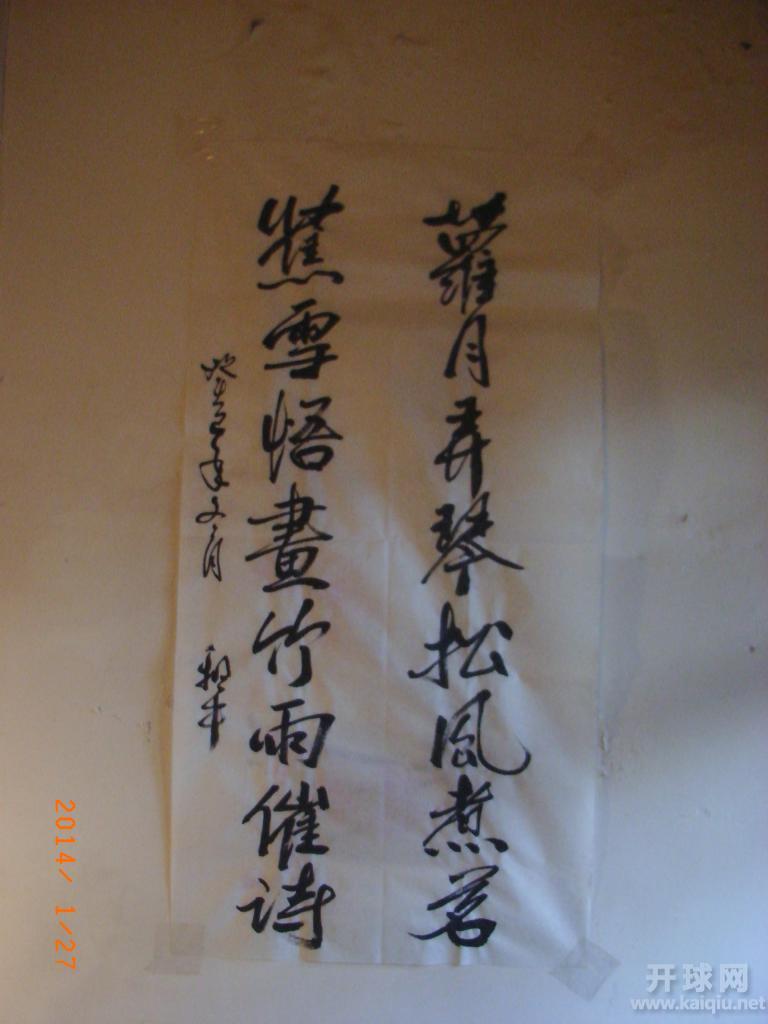 蘿月弄琴松風煮茗
蕉雪悟畫竹雨催詩
2014/ 1/27
开球网
www.kaiqiu.net